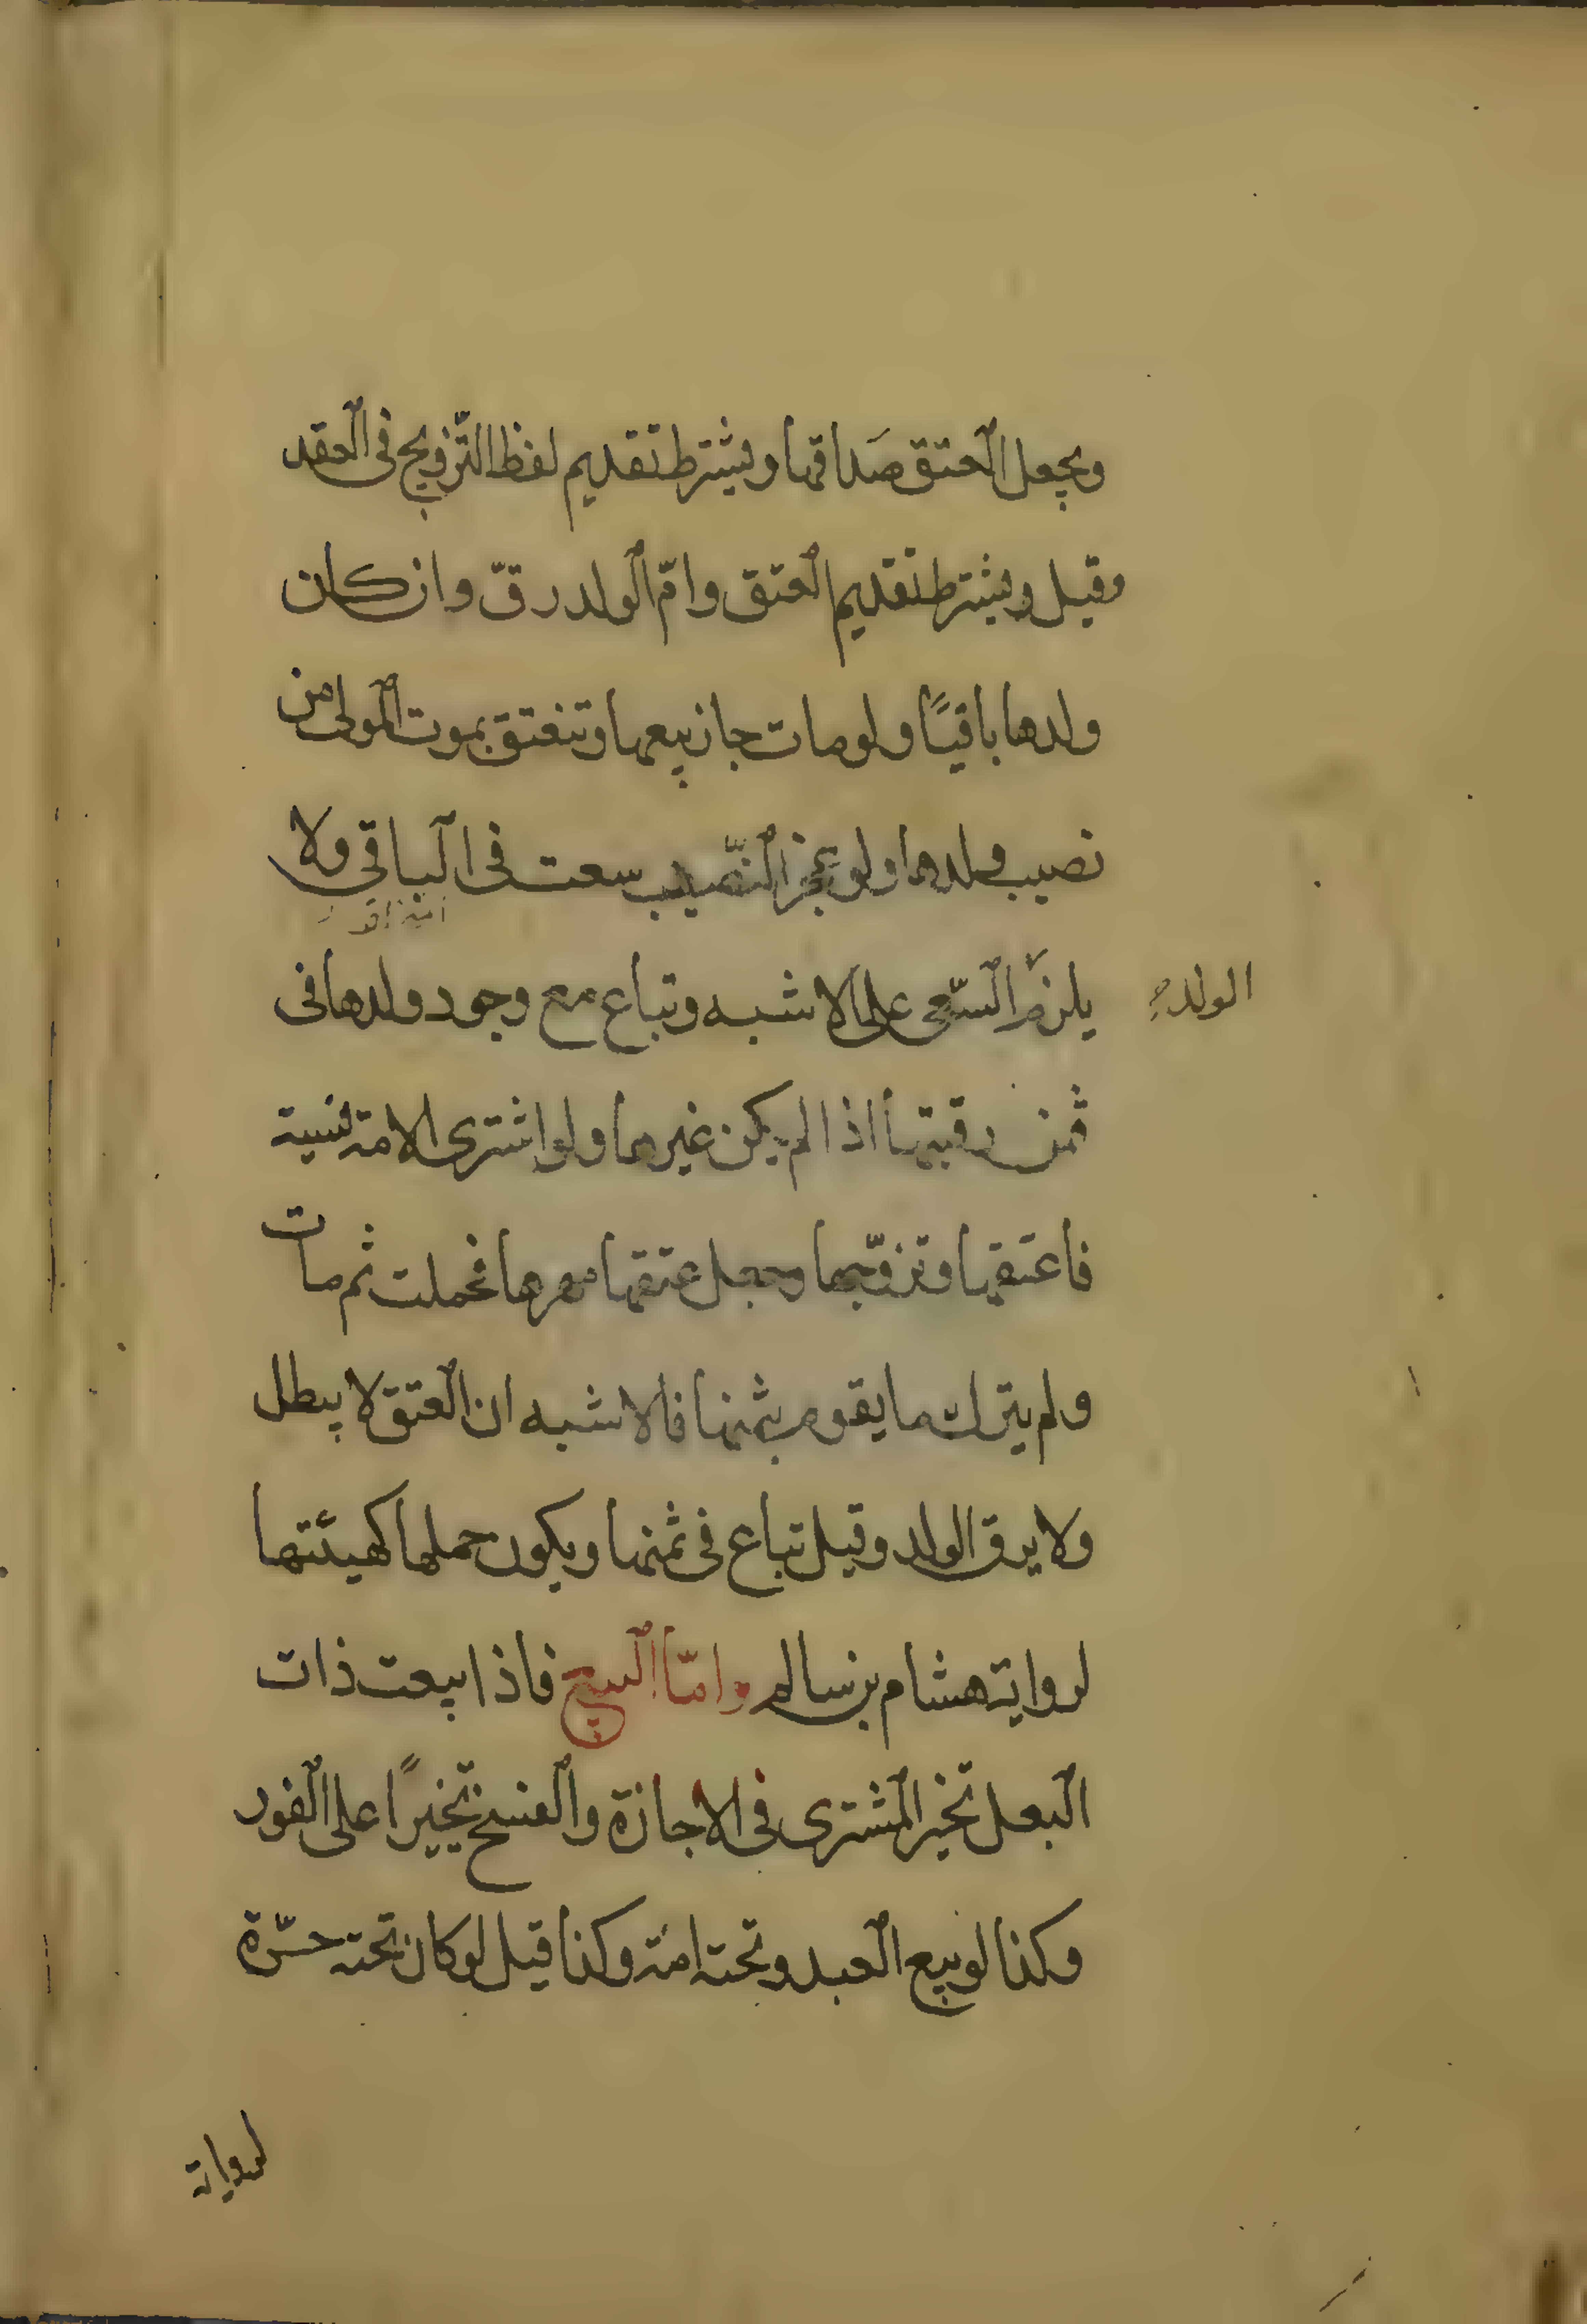 ويجعل العتق صَداقها ويشترط تقديم لفظ التّزويج في العقد
وقيل ويشترط تقديم العتق وامّ الولد رقّ وان كان
ولدها باقيًا ولو مات جاز بيعها وتنعتق بموت المولى من
نصيب ولدها ولو عجز النّصيب سعت في الباقي ولا
يلزم السّعي على الاشبه وتباع مع وجود ولدها في
الولد
ثمن رقبتها اذا لم يكن غيرها ولو اشترى الامة نسية
فاعتقها وتزوّجها وجعل عتقها مهرها فحملت ثم مات
ولم يترك ما يقوم بثمنها فالاشبه ان العتق لا يبطل
ولا يرق الولد وقيل تباع في ثمنها ويكون حملها كهيئتها
لرواية هشام بن سالم وامّا البيع فاذا بيعت ذات
البعل تخير المشترى في الاجازة والفسخ تخييرًا على الفور
وكذا لو بيع العبد وتحته امة وكذا قيل لو كان تحته حرّة
لرواية